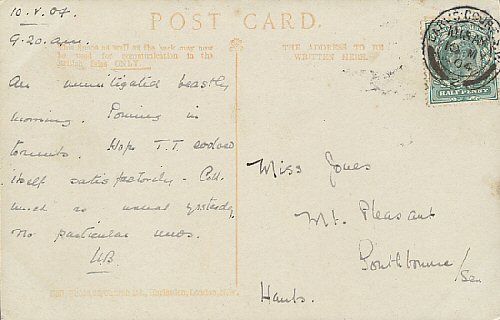 10.V.04.
9.20.am.
POST CARD.
This Space as well as the back may now
be used for communication in the
British Isles ONLY.
THE ADDRESS TO BE
WRITTEN HERE.
HALFPENNY
An unmitigated beastly
morning. Pouring in
torrents. Hope T.T. evolved
itself satisfactorily. Cold
wind as usual yesterday
No particular news.
Miss Jones
Mt. Pleasant
Southbourne/Sea
Hants.
London, N.W.